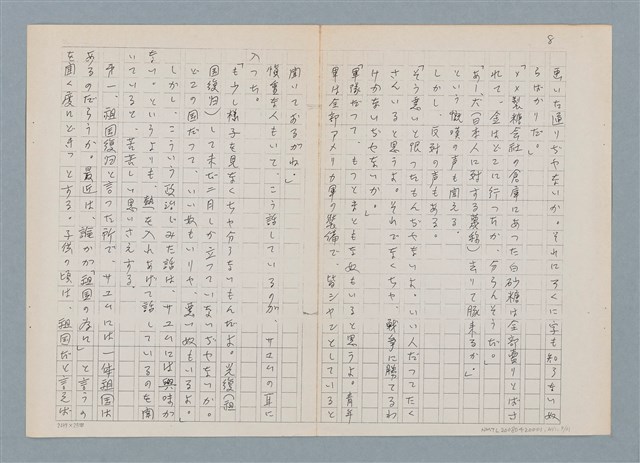 8
悪い連りぢやないか。それにろくに字も知らない奴
らばかりだ。」
「××製糖会社の倉庫にあった白砂糖は全部賣りとばさ
れて、金はどこに行ったか、分らんそうだ。」
「あー、犬（日本人に対する蔑称）去りて豚来るか。」
という慨嘆の声も聞える。
しかし、反対の声もある。
「そう悪いと限ったもんぢやないよ。いい人だってたく
さんいると思うよ。それでなくちや、戦争に勝てるわ
けがないぢやないか。」
「軍隊だって、もっとまともな奴もいると思うよ。青年
軍は全部アメリカ軍の装備で、皆シャンとしていると
聞いておるがね。」
慎重な人もいて、こう話しているのが、サユムの耳に
入った。
「も少し様子を見なくちや分らないもんだよ。光復（祖
国復帰）して未だ二月しか立っていないぢやないか。
どこの国だって、いい奴もいりや、悪い奴もいるよ。」
しかし、こういう政治じみた話は、サユムには興味が
ない。というよりも、熱を入れあげて話しているのを聞
いていると、苦々しい思いさえする。
第一、祖国復帰と言った所で、サユムには一体祖国は
あるのだろうか。最近は、誰かが「祖国の為に」と言うの
を聞く度にどきっとする。子供の頃は、祖国だと言えば